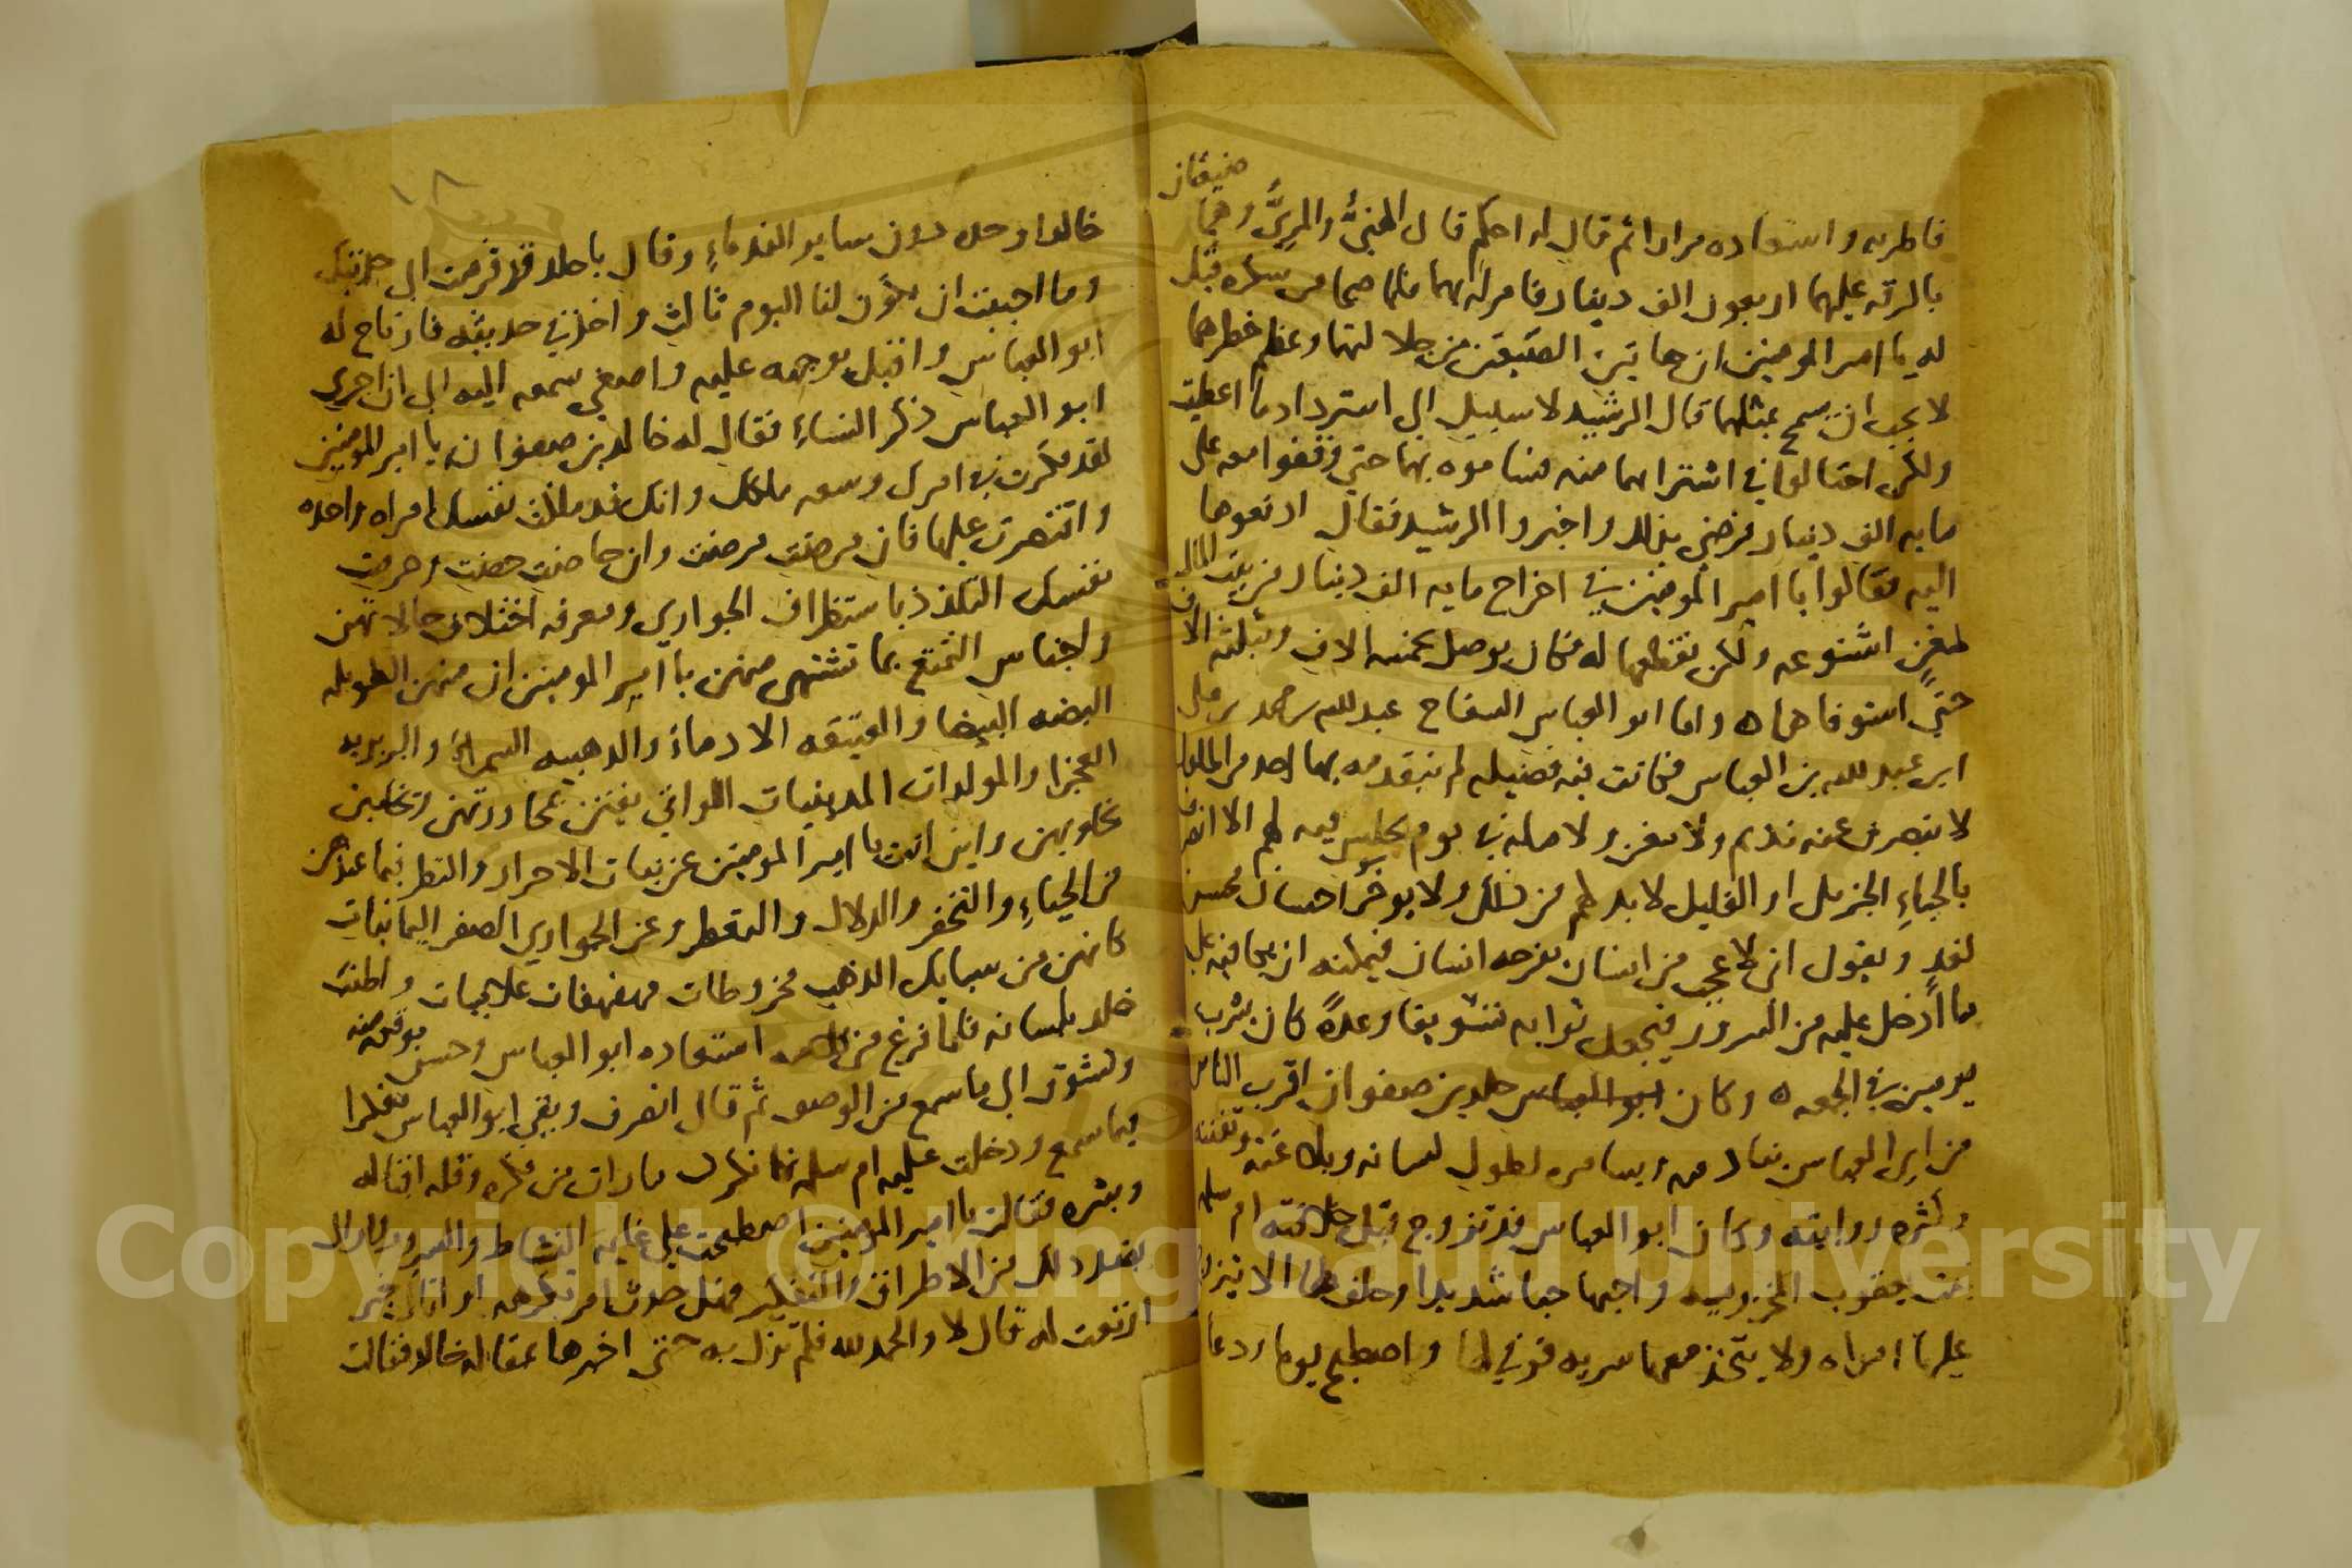 ضيعتان
فاطربه واستعاده مرارا ثم قال له احكم قال الهنئُ والمرئُ وهما
بالرقه عليهما اربعون الف دينار فامر له بهما فلما صحا من سكره قيل
له يا امير المومنين ان هاتين الضيعتين من جلالتهما وعظم خطرهما
لا يجب ان يسمح بمثلهما قال الرشيد لا سبيل الى استرداد ما اعطيت
ولكن احتالوا في اشترايهما منه فساموه بهما حتى وقفوا معه على
مايه الف دينار فرضى بذلك واخبروا الرشيد فقال ادفعوها
اليه فقالوا يا امير المومنين في اخراج مايه الف دينار من بيت المال
لمغن اشنوعه ولكن نقطعها له فكان يوصل بخمسه الاف وثلثه الاف
حتى استوفاها ه واما ابو العباس السفاح عبد الله بن محمد بن على
ابن عبد الله بن العباس فكانت فيه فضيله لم يتقدمه بها احد من الملوك
لا ينصرف عنه نديم ولا مغن ولا صله في يوم يجلس فيه لهم الا انصرف
بالحباءِ الجزيل او القليل لا بد لهم من ذلك ولا يوخر احسان محسن
لغدٍ ويقول انى لاعجب من انسان يفرحه انسان فيمكنه ان يكافيه على
ما اُدخل عليه من السرور فيجعل ثوابه تسويفا وعدةً كان يشرب
يومين في الجمعه ه وكان ابو العباس خلد بن صفوان اقرب الناس
من ابى العباس ينادمه ويسامره لطول لسانه وبلاغته وتفننه
وكثره روايته وكان ابو العباس قد تزوج قبل خلافته ام سلمه
بنت يعقوب المخزوميه واحبها حبا شديدا وحلف لها الا يتزوج
عليها امراه ولا يتخذ معها سريه فوفى لها واصطبح يوما ودعا
١٨
خالدا وحده دون ساير الندماءِ وقال يا خلد قد قرمت الى حديثك
وما احببت ان يكون لنا اليوم ثالث واخذ في حديثه فارتاح له
ابو العباس واقبل بوجهه عليه واصغى سمعه اليه الى ان اجرى
ابو العباس ذكر النساءِ فقال له خالد بن صفوان يا امير المومنين
لقد فكرت في امرك وسعه ملكك وانك قد ملكت نفسك امراه واحده
واقتصرت عليها فان مرضت مرضت وان حاضت حضت وحرمت
نفسك التلذذ باستظراف الجوارى ومعرفه اختلاف حالاتهن
واجناس التمتع بما تشتهى منهن يا امير المومنين ان منهن الطويله
البضه البيضا والعتيقه الادماءَ والذهبيه السمراءَ والبربريه
العجزا والمولدات المدنيات اللواتى يفتنن بمحاورتهن وتخلبن
بخلوتهن واين انت يا امير المومنين عن بنات الاحرار والنظر بما عندهن
من الحياءِ والتخفر والدلال والتعطر وعن الجوارى الصفر اليمانيات
كانهن من سبايك الذهب مخروطات مهفهفات علاجيات واطنب
خلد بلسانه فلما فرغ من كلامه استعاده ابو العباس وحسن موقعه منه
وتشوق الى ما سمع من الوصف ثم قال انصرف وبقى ابو العباس مفكرا
بما سمع ودخلت عليه ام سلمه فانكرت ما رات من فكره وقله اقباله
وبشره فقالت يا امير المومنين اصطبحت على غايه النشاط والسرور
بعد ذلك من الاطراق والتفكير فهل حدث امر تكرهه او اتاك خبر
ارتعت له قال لا والحمد لله فلم تزل به حتى اخبرها بمقاله خالد فقالت